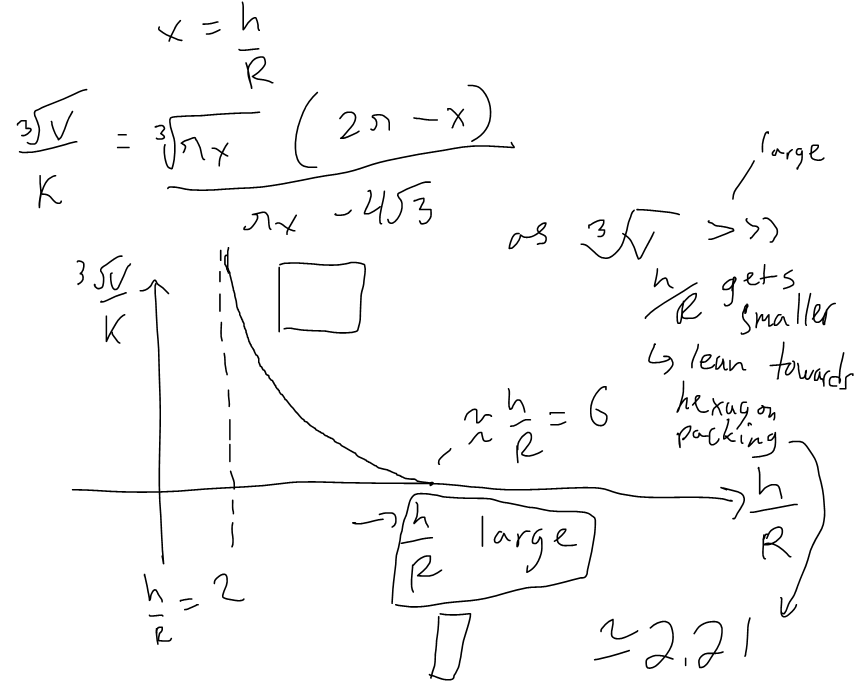 x = h/R
∛V/K = ∛(πx) (2π - x) / (πx - 4√3)
large
as ∛V >>>
h/R gets smaller
↳ lean towards
hexagon
packing
≃ 2.21
∛V/K
≈ h/R = 6
h/R
→ h/R large
h/R = 2